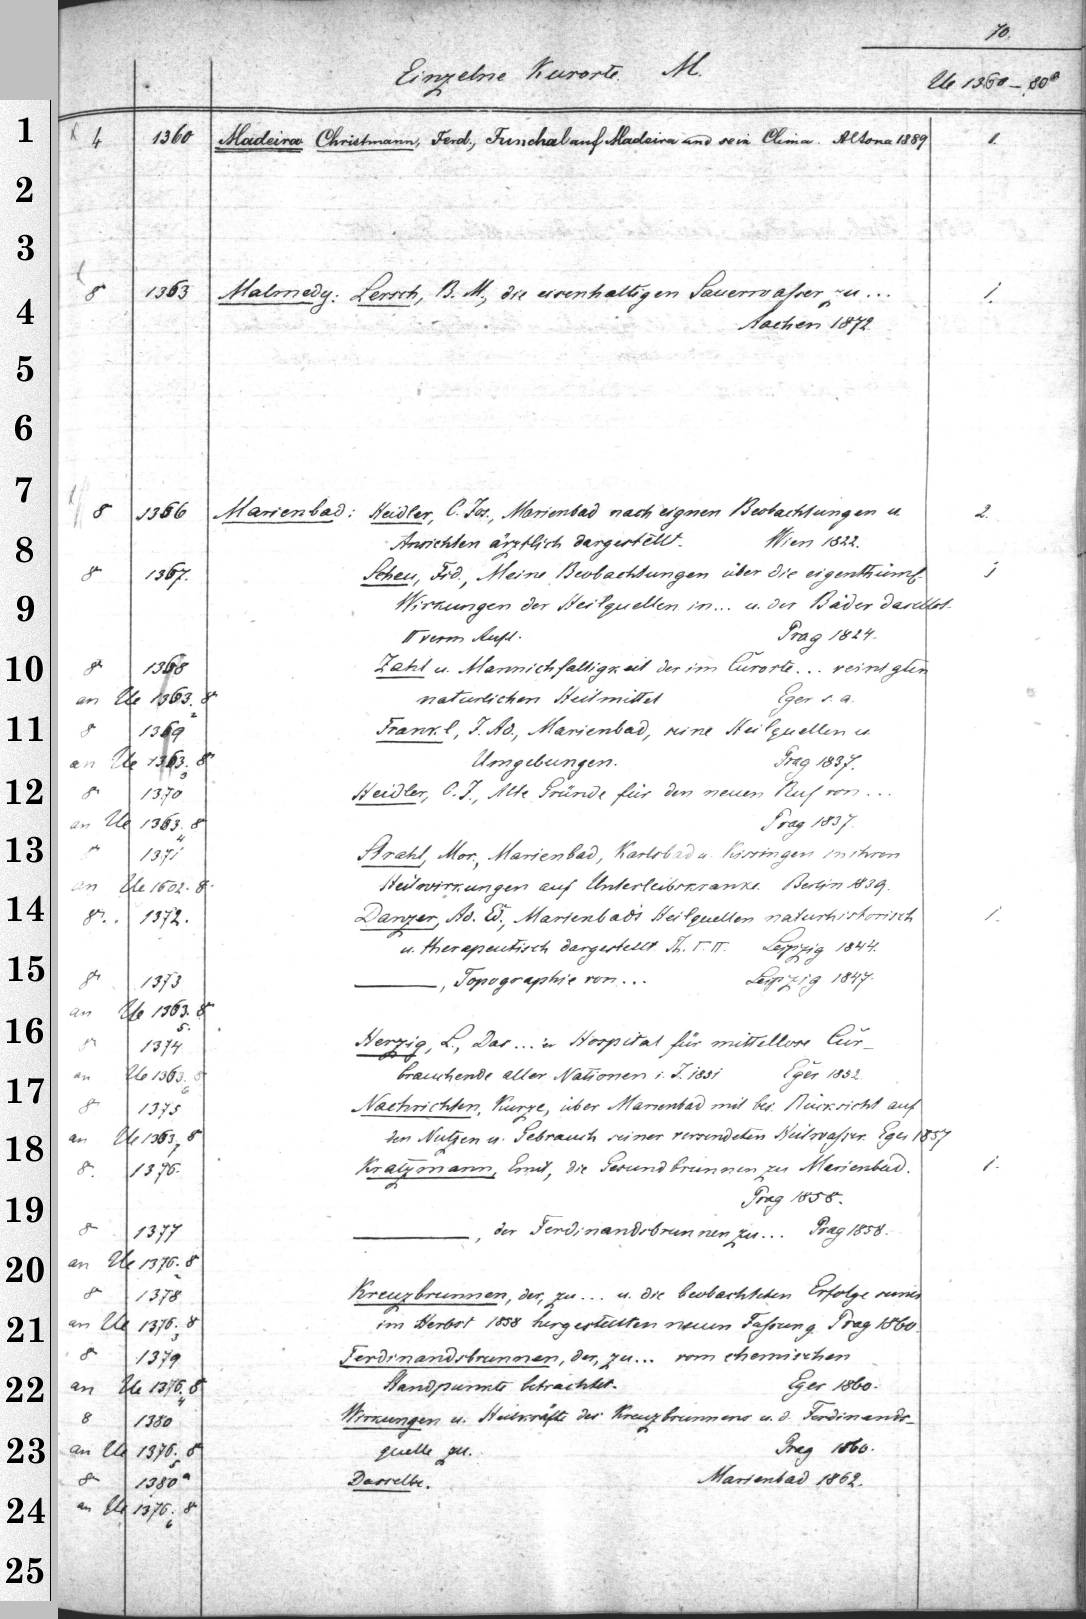 70.
Einzelne Kurorte. M.
Ue 1360–80a
1
4 1360 Madeira Christmann, Ferd., Funchal auf Madeira und sein Clima. Altona 1889 1.
2
3
8 1363 Malmedy: Lersch, B. M., die eisenhaltigen Sauerwasser zu ... 1.
4
Aachen 1872
5
6
7
8 1366 Marienbad: Heidler, C. Jos., Marienbad nach eignen Beobachtungen u. 2.
8
Ansichten ärztlich dargestellt. Wien 1822.
8 1367. Scheu, Frd., Meine Beobachtungen über die eigenthüml. 1
9
Wirkungen der Heilquellen in... u. der Bäder daselbst.
II verm Aufl. Prag 1824.
10
8 1368 Zahl u. Mannichfaltigkeit der im Curorte... vereinigten
an Ue 1363. 8 natürlichen Heilmittel Eger s. a.
2
11
8 1369 Frankl, J. Ad., Marienbad, seine Heilquellen u
an Ue 1363. 8 Umgebungen. Prag 1837.
3
12
8 1370 Heidler, C. J., Alte Gründe für den neuen Ruf von ...
an Ue 1363. 8 Prag 1837.
4
13
8 1371 Strahl, Mor., Marienbad, Karlsbad u. Kissingen in ihren
an Ue 1602. 8. Heilwirkungen auf Unterleibskranke. Berlin 1839.
14
8. 1372. Danzer, Ad. Ed., Marienbads Heilquellen naturhistorisch 1.
u. therapeutisch dargestellt Th. I. II. Leipzig 1844.
15
8 1373 ———, Topographie von ... Leipzig 1847.
an Ue 1363. 8
5.
16
8 1374 Herzig, L., Das ... er Hospital für mittellose Cur-
an Ue 1363. 8 brauchende aller Nationen i. J. 1851 Eger 1852.
6
17
8 1375 Nachrichten, Kurze, über Marienbad mit bes. Rücksicht auf
an Ue 1363, 8 den Nutzen u. Gebrauch seiner versendeten Heilwasser. Eger 1857
7
18
8. 1376. Kratzmann, Emil, die Gesundbrunnen zu Marienbad. 1.
Prag 1858.
19
8 1377 ———, der Ferdinandsbrunnen zu ... Prag 1858.
an Ue 1376. 8
2
20
8 1378 Kreuzbrunnen, der, zu ... u. die beobachteten Erfolge seiner
an Ue 1376. 8 im Herbst 1858 hergestellten neuen Fassung. Prag 1860.
3
21
8 1379 Ferdinandsbrunnen, der, zu ... vom chemischen
22
an Ue 1376. 8 Standpunkte betrachtet. Eger 1860.
4
8 1380 Wirkungen u. Heilkräfte des Kreuzbrunnens u. d. Ferdinands-
23
an Ue 1376. 8 quelle zu. Prag 1860.
5
8 1380a Dasselbe. Marienbad 1862.
24
an Ue 1376. 8
6
25